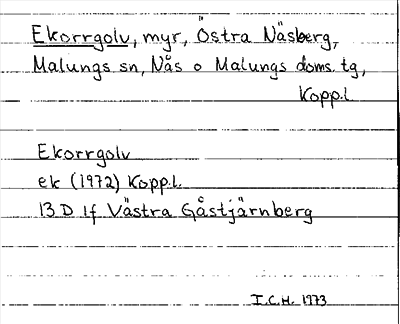 Ekorrgolv, myr, Östra Näsberg,
Malungs sn, Nås o Malungs doms. tg,
Kopp.l.
Ekorrgolv
ek (1972) Kopp.l.
13 D 1f Västra Gåstjärnberg
I.C.H. 1973